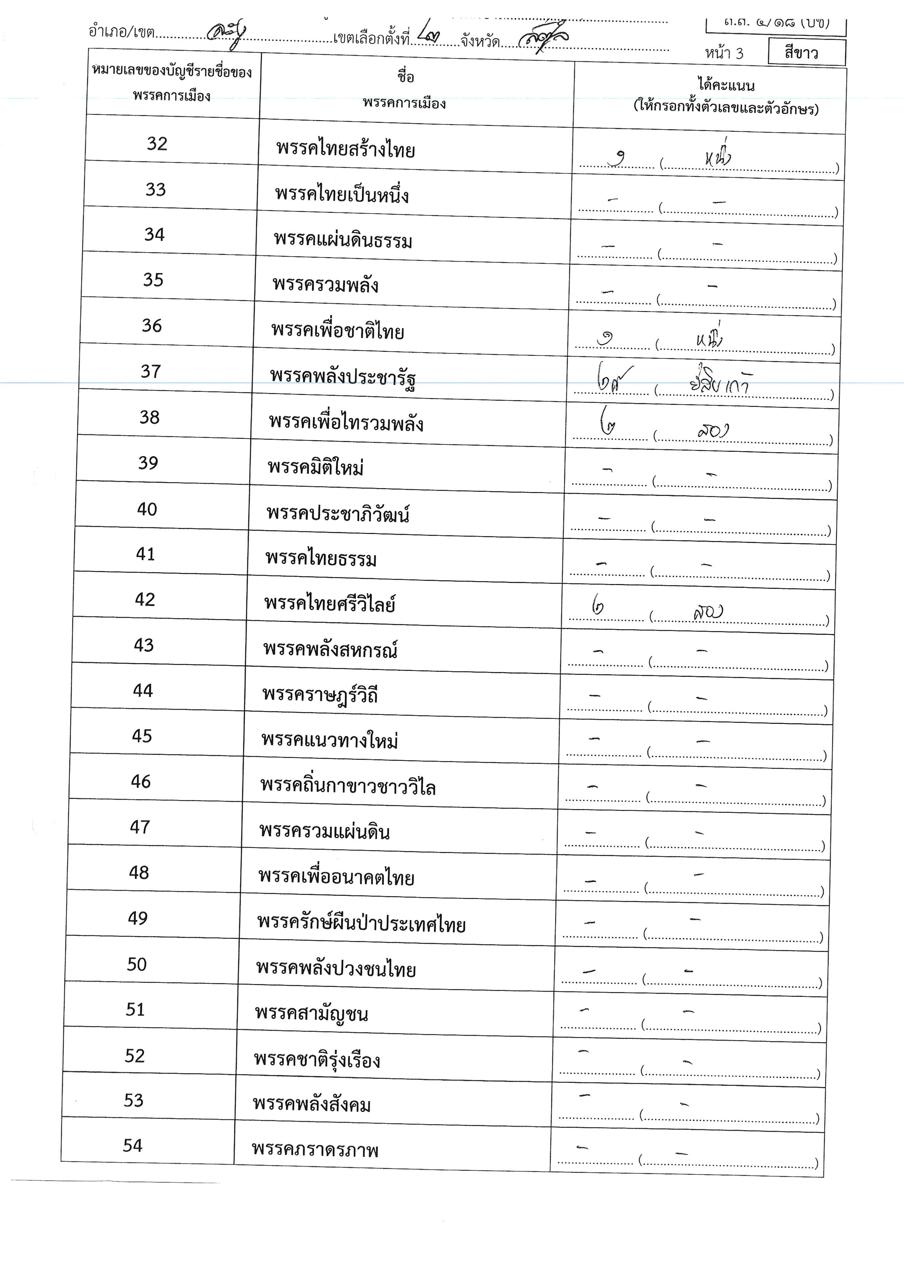 ส.ส. ๕/๑๘ (บช)
อำเภอ/เขต.......... เขตเลือกตั้งที่ ๒ จังหวัด สตูล
หน้า 3 สีขาว
หมายเลขของบัญชีรายชื่อของพรรคการเมือง ชื่อพรรคการเมือง ได้คะแนน (ให้กรอกทั้งตัวเลขและตัวอักษร)
32 พรรคไทยสร้างไทย ๑ (หนึ่ง)
33 พรรคไทยเป็นหนึ่ง - (-)
34 พรรคแผ่นดินธรรม - (-)
35 พรรครวมพลัง - (-)
36 พรรคเพื่อชาติไทย ๑ (หนึ่ง)
37 พรรคพลังประชารัฐ ๒๙ (ยี่สิบเก้า)
38 พรรคเพื่อไทรวมพลัง ๒ (สอง)
39 พรรคมิติใหม่ - (-)
40 พรรคประชาภิวัฒน์ - (-)
41 พรรคไทยธรรม - (-)
42 พรรคไทยศรีวิไลย์ ๒ (สอง)
43 พรรคพลังสหกรณ์ - (-)
44 พรรคราษฎร์วิถี - (-)
45 พรรคแนวทางใหม่ - (-)
46 พรรคถิ่นกาขาวชาววิไล - (-)
47 พรรครวมแผ่นดิน - (-)
48 พรรคเพื่ออนาคตไทย - (-)
49 พรรครักษ์ผืนป่าประเทศไทย - (-)
50 พรรคพลังปวงชนไทย - (-)
51 พรรคสามัญชน - (-)
52 พรรคชาติรุ่งเรือง - (-)
53 พรรคพลังสังคม - (-)
54 พรรคภราดรภาพ - (-)